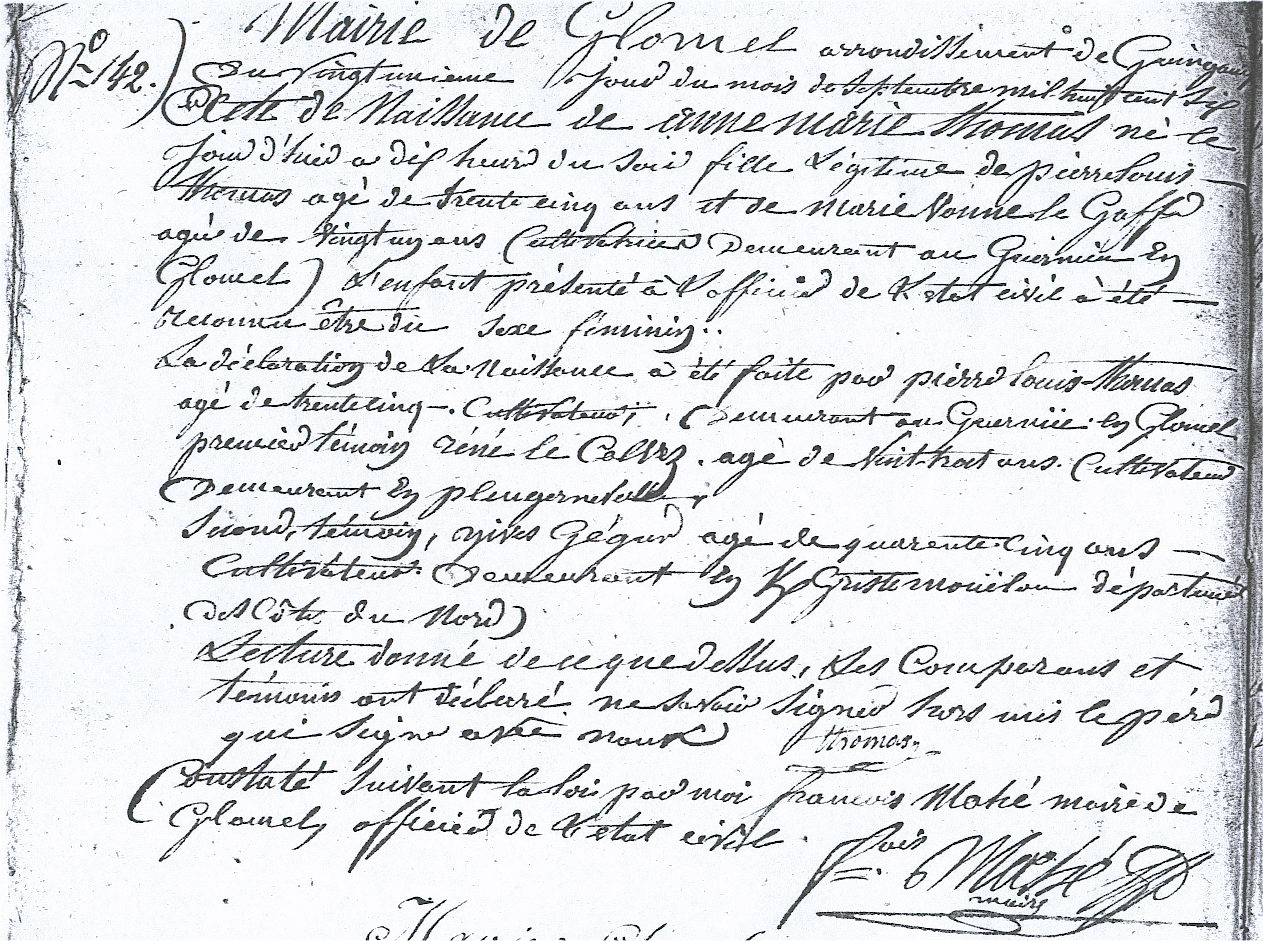 Mairie de Glomel arrondissement de Guingamp
N° 142.) Du vingtunieme jour du mois de Septembre mil huit cent Six
Acte de Naissance de anne marie thomas né le
jour d'hier a dix heure du soir fille Légitime de pierre louis
thomas agé de trente cinq ans et de marie vonne le Gaff
agée de vingt un ans Cultivatrice Demeurant au Guernïen En
Glomel) L'enfant présenté à L'officier de L'etat civil à été
reconnu être du sexe féminin..
La déclaration de La Naissance à été faite par pierre louis thomas
agé de trente cinq. Cultivateur, Demeurant au Guernïe en Glomel
premier témoin réné le agé de vint huit ans. Cultivateur
Demeurant En plouguernevelle
Second, témoin, yives agé de quarente cinq ans
Cultivateur Demeurant En K/Gristemoüelou département
des Côte du Nord)
Lecture donné de ce que dessus, Les Comparans et
témoins ont déclaré ne savoir signer hors mis le pére
qui Signe avec nous thomas
Constaté Suivant la loi par moi francois Mahé maire de
Glomel, officier de L'etat civil
fois Mahé
maire